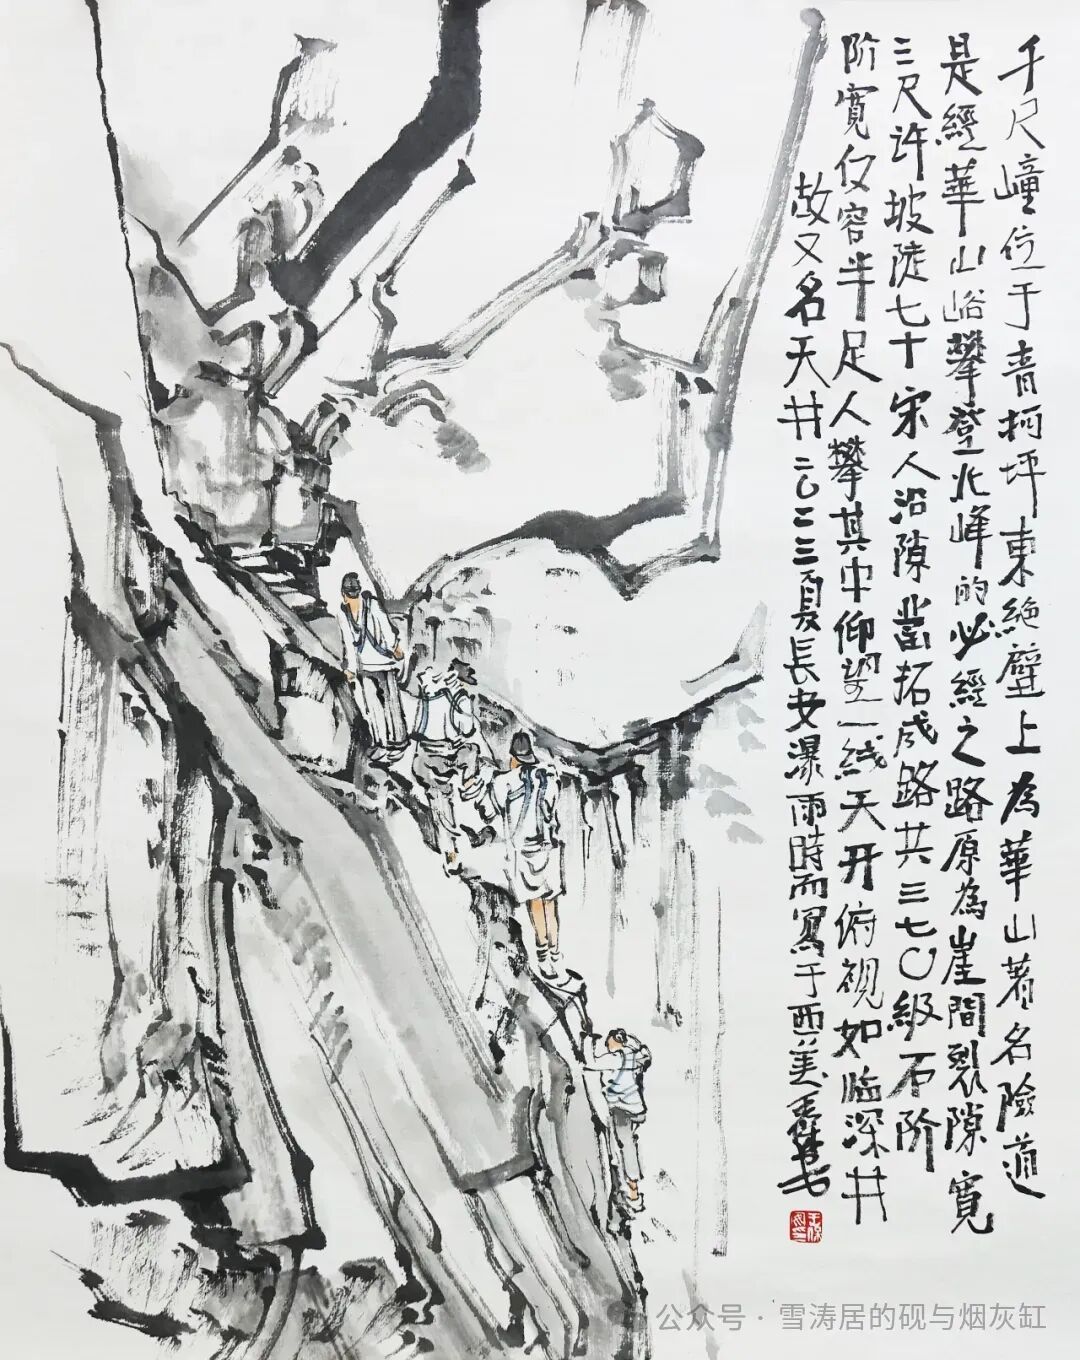 千尺㠉位于青柯坪東絶壁上為華山著名險道
是經華山峪攀登北峰的必經之路原為崖間裂隙寬
三尺许坡陡七十宋人沿隙凿拓成路共三七〇级石阶
阶寬仅容半足人攀其中仰望一线天开俯视如临深井
故又名天井二〇二三夏長安瀑雨時而寫于西美
公众号·雪涛居的砚与烟灰缸